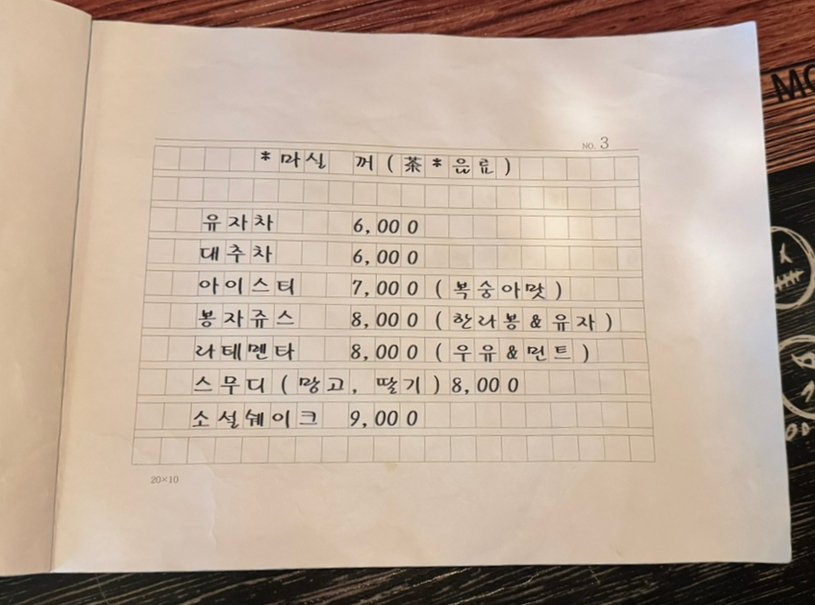 NO. 3
*마실 꺼(茶*음료)
유자차 6,000
대추차 6,000
아이스티 7,000(복숭아맛)
봉자쥬스 8,000(한라봉&유자)
라테멘타 8,000(우유&민트)
스무디(망고, 딸기)8,000
소설쉐이크 9,000
20×10